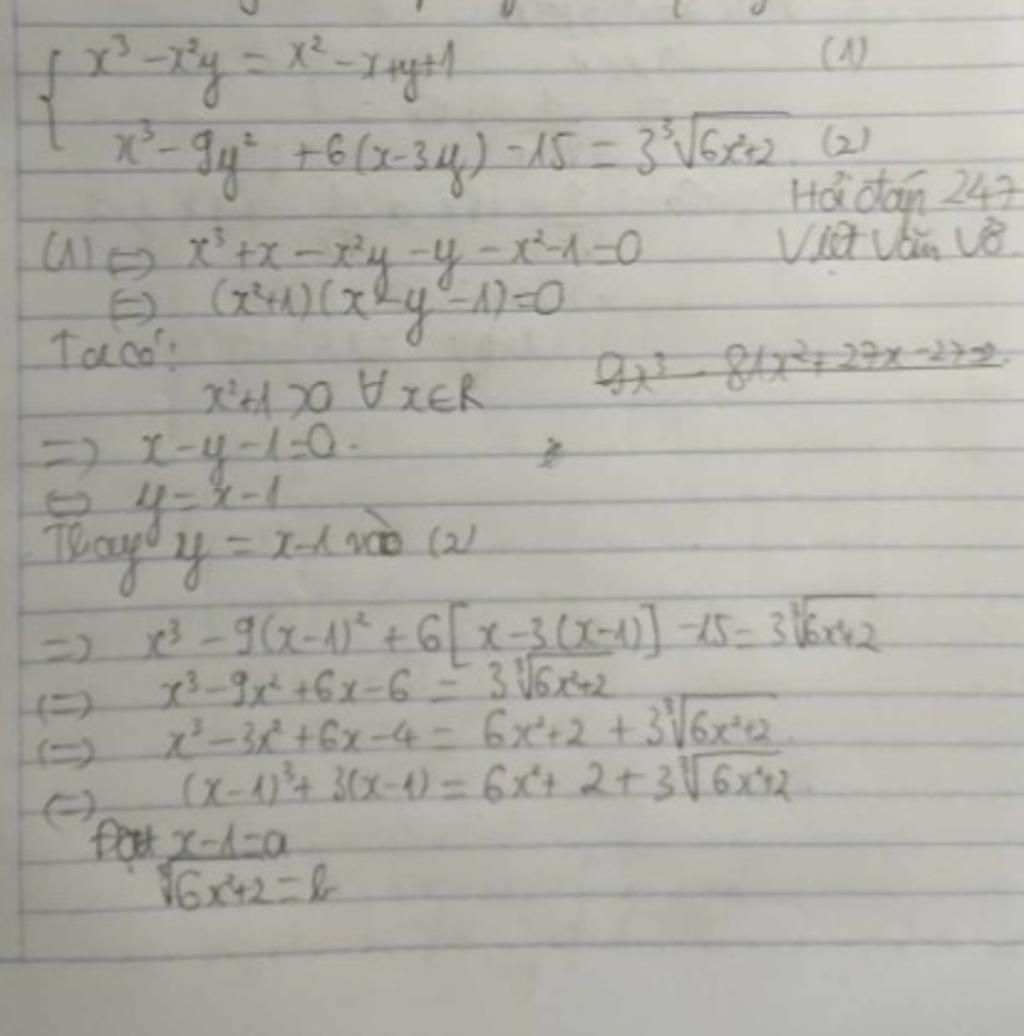 x³ - x²y = x² - x + y + 1 (1)
x³ - 9y² + 6(x - 3y) - 15 = 3∛(6x²+2) (2)
Hỏi đáp 247
Viết Văn Vở
(1) ⇔ x³ + x - x²y - y - x² - 1 = 0
⇔ (x²+1)(x - y - 1) = 0
Ta có:
9x³ - 81x² + 27x - 27 =
x²+1 > 0 ∀ x ∈ R
=> x - y - 1 = 0.
⇔ y = x - 1
Thay y = x - 1 vào (2)
=> x³ - 9(x-1)² + 6[x - 3(x-1)] - 15 = 3∛(6x²+2)
(=) x³ - 9x² + 6x - 6 = 3∛(6x²+2)
(=) x³ - 3x² + 6x - 4 = 6x² + 2 + 3∛(6x²+2)
(=) (x-1)³ + 3(x-1) = 6x² + 2 + 3∛(6x²+2)
Đặt x - 1 = a
∛(6x²+2) = b